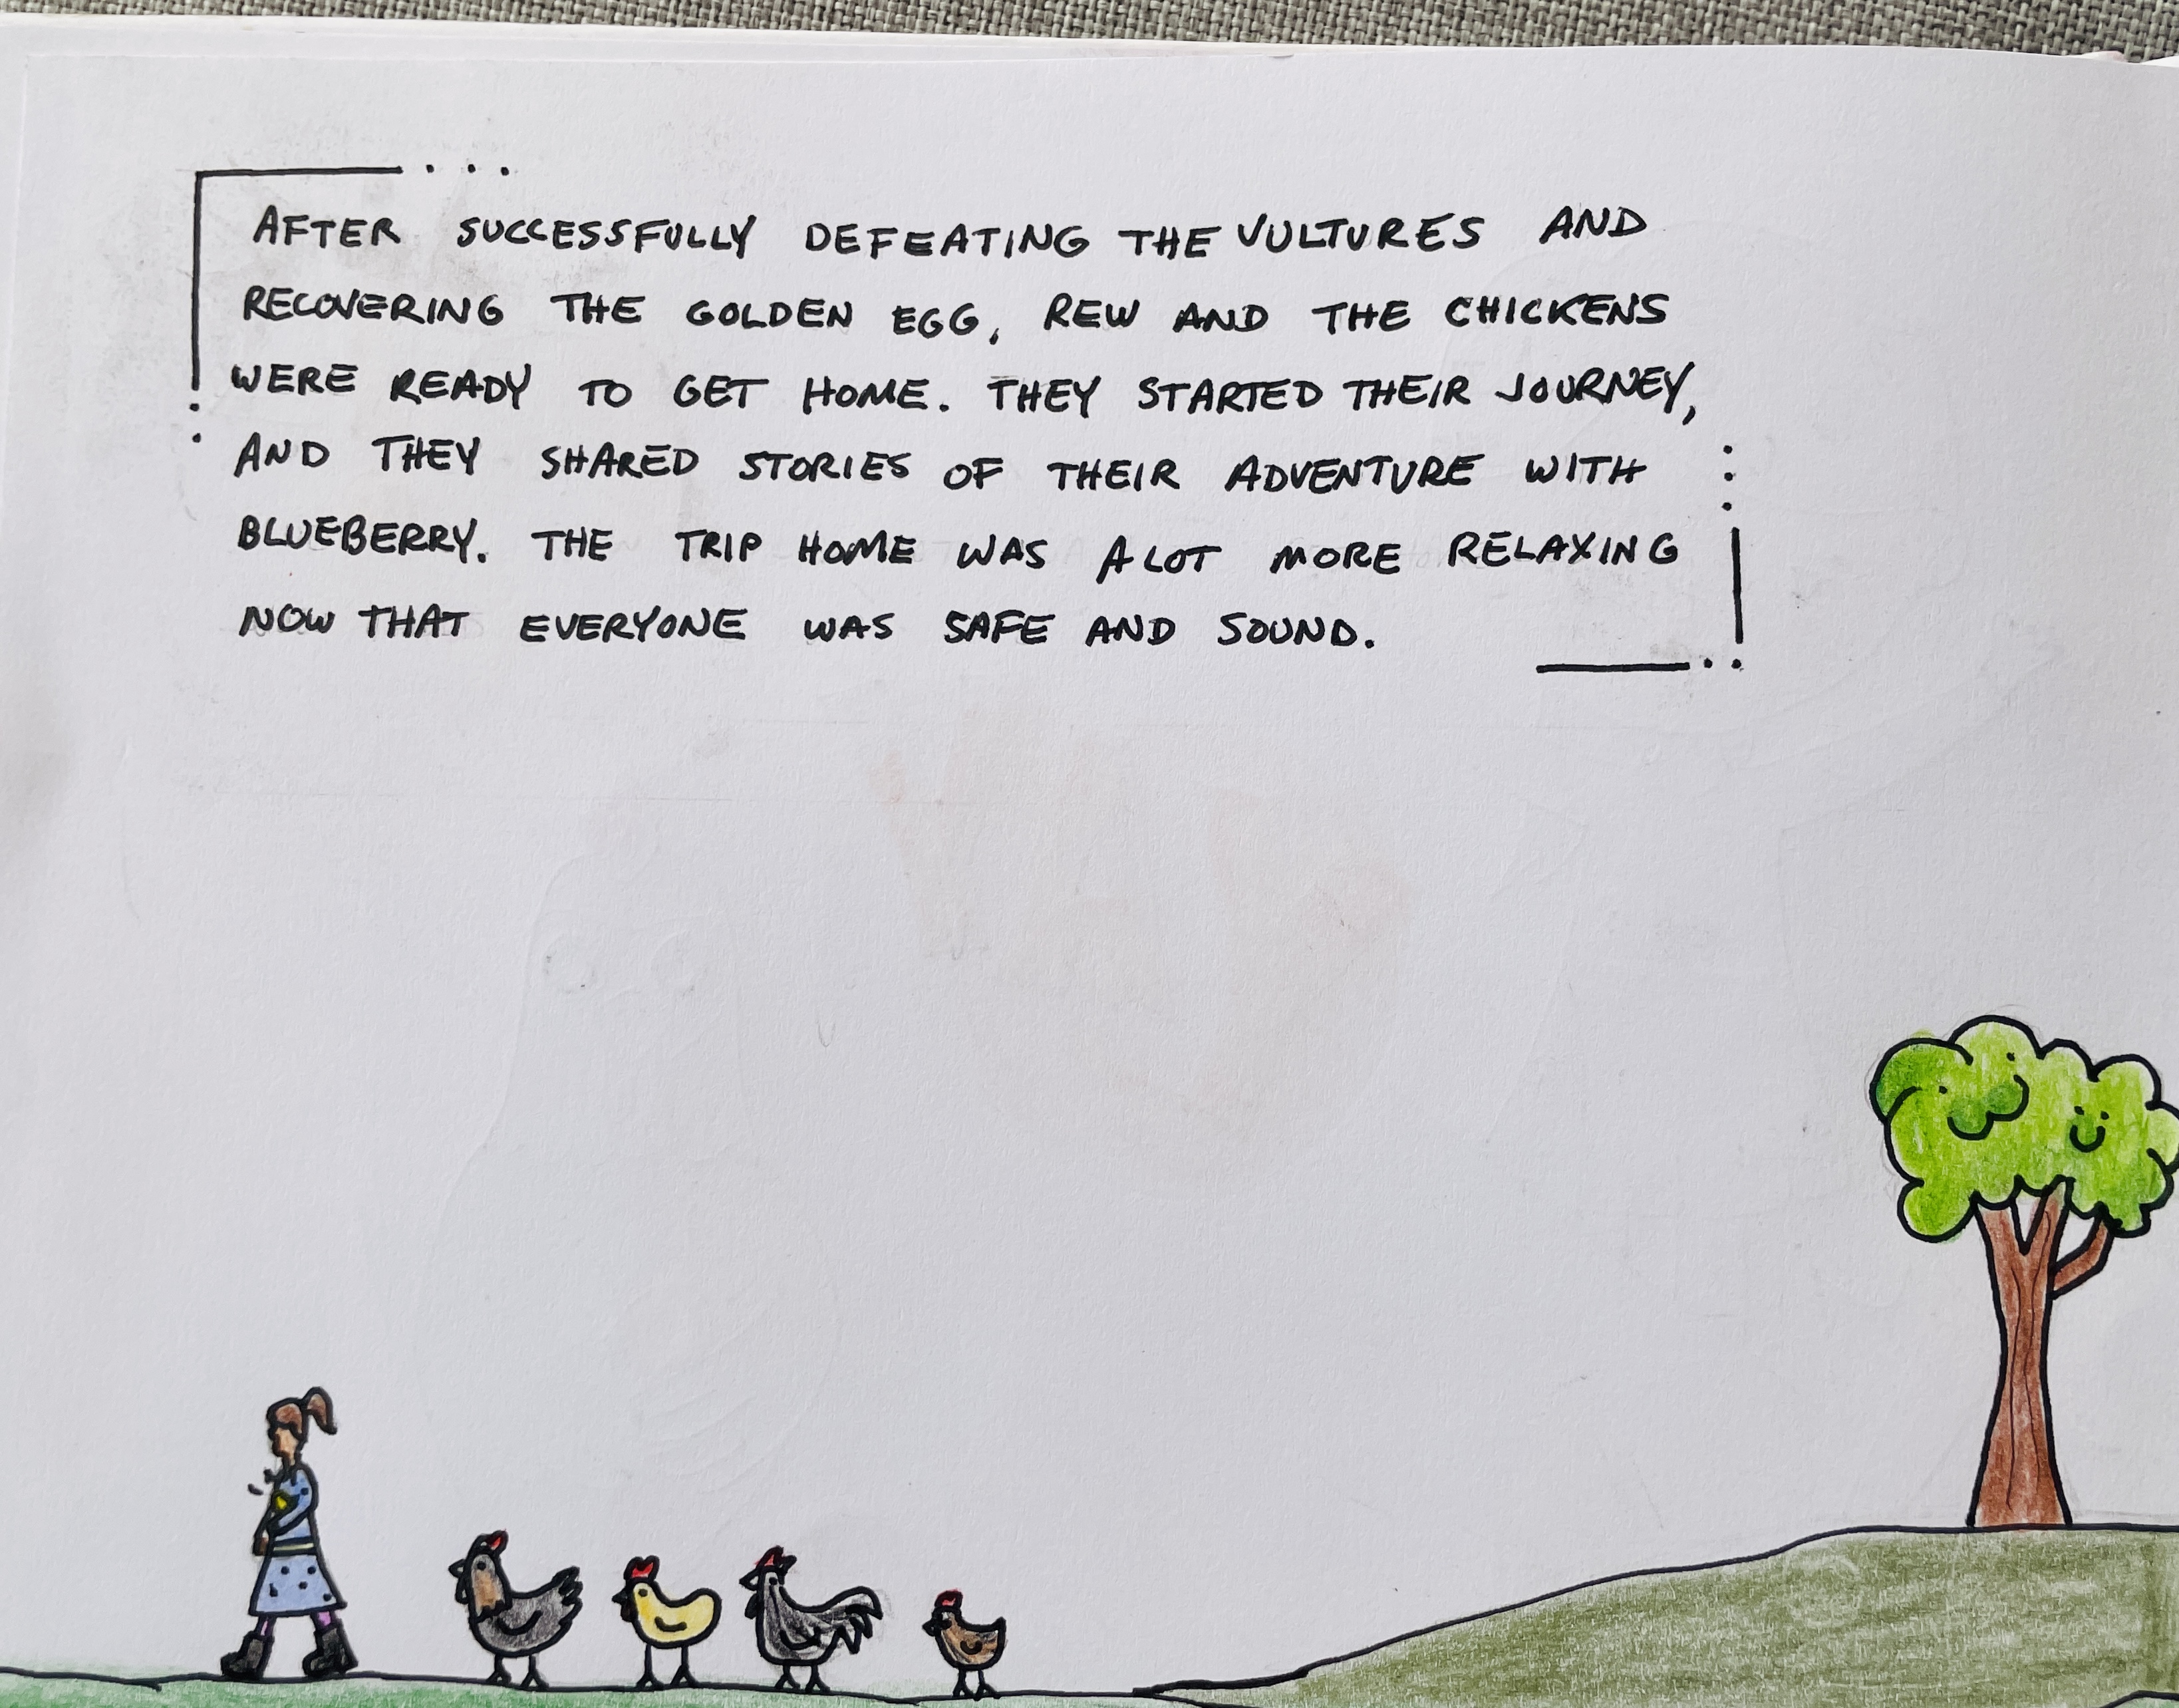 AFTER SUCCESSFULLY DEFEATING THE VULTURES AND
RECOVERING THE GOLDEN EGG, REW AND THE CHICKENS
WERE READY TO GET HOME. THEY STARTED THEIR JOURNEY,
AND THEY SHARED STORIES OF THEIR ADVENTURE WITH
BLUEBERRY. THE TRIP HOME WAS A LOT MORE RELAXING
NOW THAT EVERYONE WAS SAFE AND SOUND.